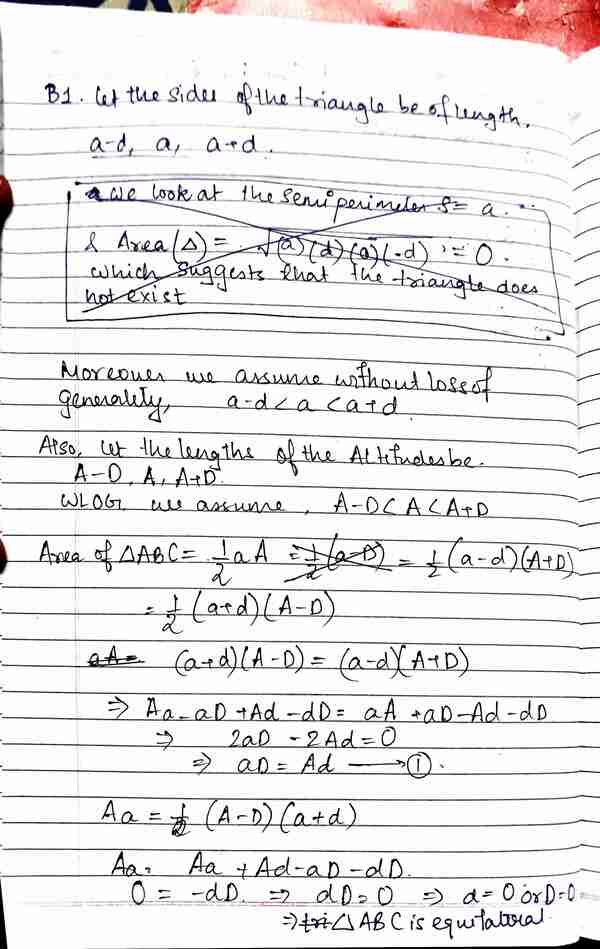 B1. Let the sides of the triangle be of length.
a-d, a, a+d.
we look at the semiperimeter S= a.
& Area (Δ) = √(a)(d)(a)(-d) = 0.
which suggests that the triangle does
not exist
Moreover we assume without loss of
generality, a-d < a < a+d
Also, let the lengths of the Altitudes be.
A-D, A, A+D.
WLOG, we assume, A-D < A < A+D
Area of △ABC = 1/2 a A = 1/2 (a-D) = 1/2 (a-d)(A+D)
= 1/2 (a+d)(A-D)
aA= (a+d)(A-D) = (a-d)(A+D)
⇒ Aa - aD + Ad - dD = aA + aD - Ad - dD
⇒ 2aD - 2Ad = 0
⇒ aD = Ad → ①.
Aa = 1/2 (A-D)(a+d)
Aa = Aa + Ad - aD - dD.
0 = -dD. ⇒ dD = 0 ⇒ d = 0 or D = 0
⇒ tri △ABC is equilateral.